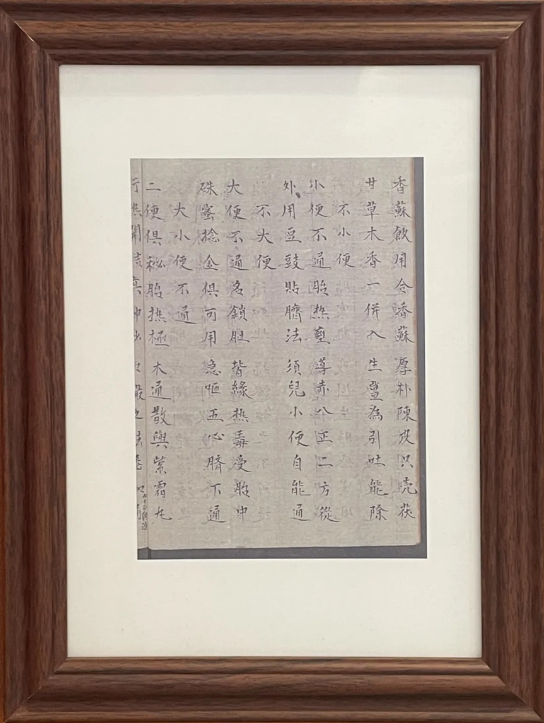 香蘇飲用全香蘇厚朴陳皮只壳茯
甘草木香一併入生薑為引吐能除
不小便
小便不通胎热壅導赤八正二方從
外用豆豉貼臍法須兒小便自能通
不大便
大便不通名鎖肚皆緣热毒受胎中
硃蜜捻金俱可用急呕五心臍下通
大小便不通
二便俱秘胎热極木通散與紫霜丸